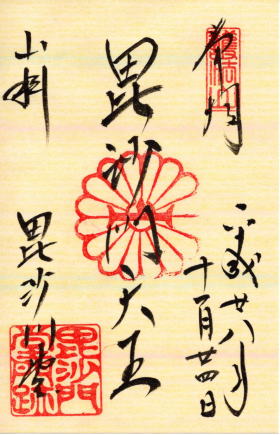 奉拝
平成廿八年
十一月廿四日
毘沙門天王
山科
毘沙門堂
毘沙門
堂門跡